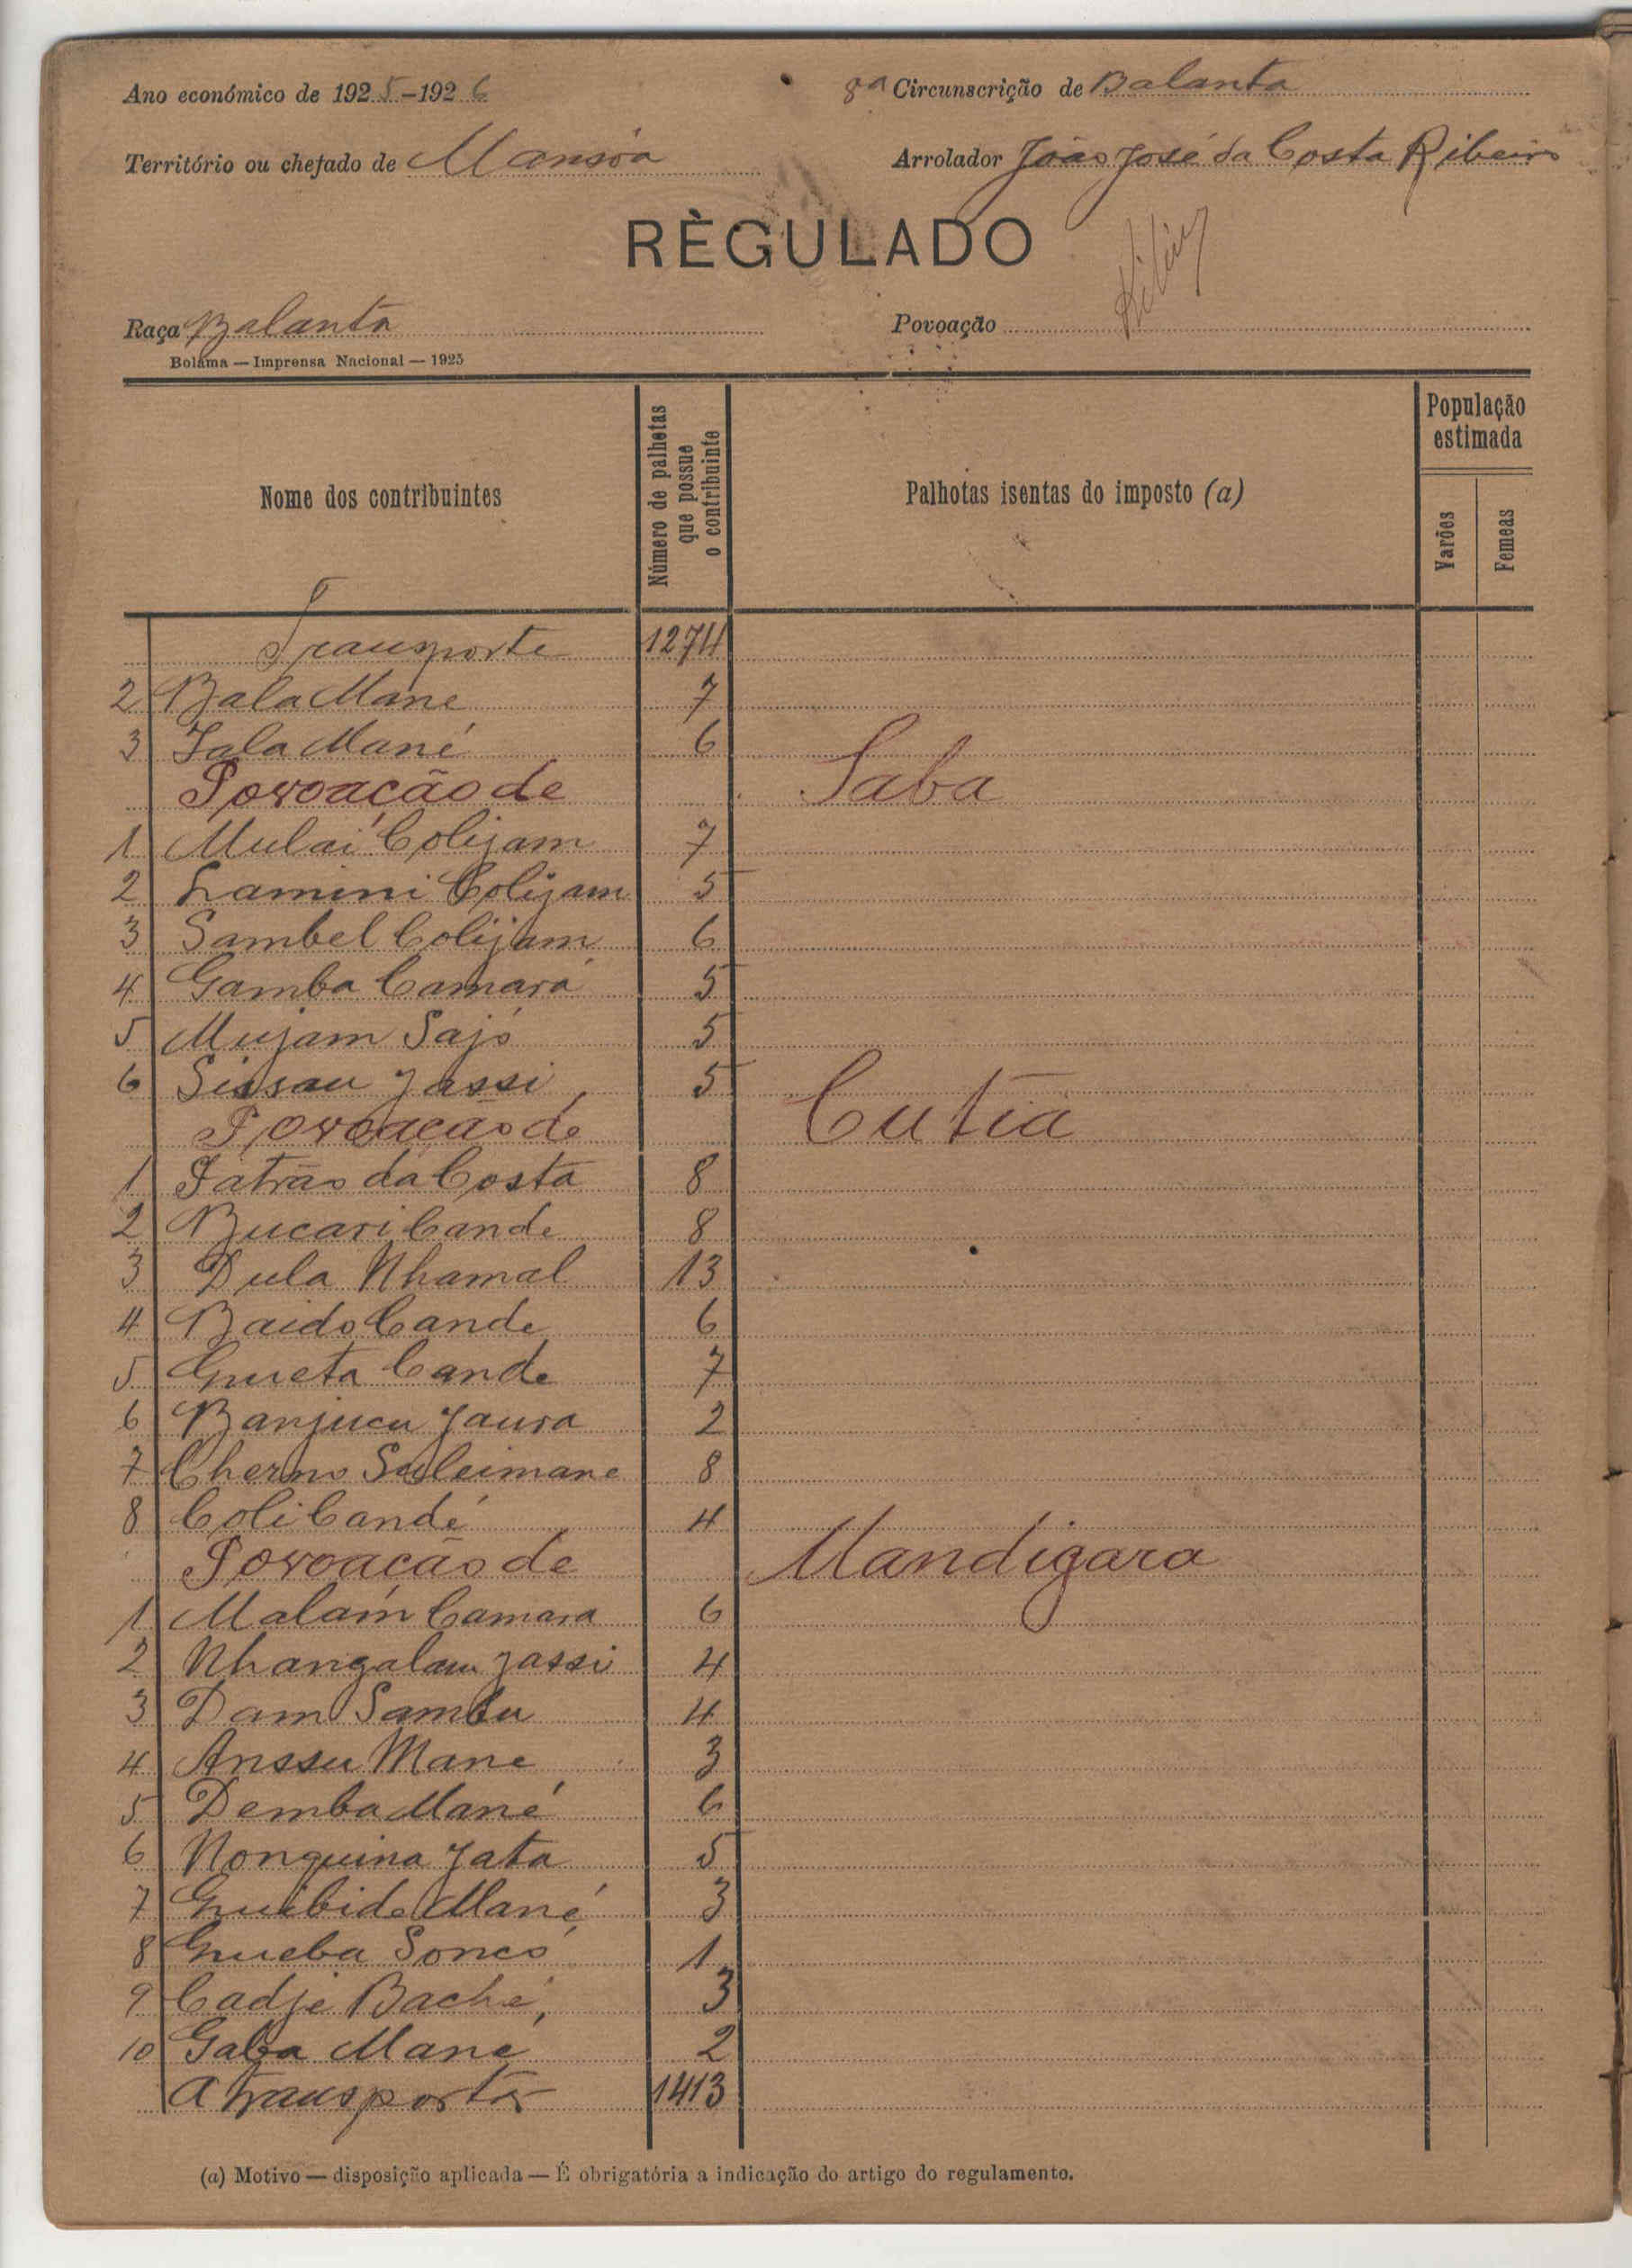 Ano económico de 1925-1926
8ª Circunscrição de Balanta
Território ou chefado de Mansôa
Arrolador João José da Costa Ribeiro
RÈGULADO
Raça Balanta
Povoação
Bolama — Imprensa Nacional — 1925
Nome dos contribuintes
Número de palhotas que possue o contribuinte
Palhotas isentas do imposto (a)
População estimada
Varões
Femeas
Transporte 1274
2 Bala Mané 7
3 Jala Mané 6
Povoação de Saba
1 Mulai Colijam 7
2 Lamini Colijam 5
3 Sambel Colijam 6
4 Gamba Camará 5
5 Mujam Sajó 5
6 Sissau Jassi 5
Povoação de Cutiá
1 Patrão da Costa 8
2 Bucari Cande 8
3 Dula Nhamal 13
4 Baido Cande 6
5 Gueta Cande 7
6 Banjucu Jaura 2
7 Cherno Suleimane 8
8 Coli Candé 4
Povoação de Mandigara
1 Malam Camara 6
2 Nhangalam Jassi 4
3 Dam Sambu 4
4 Anssu Mane 3
5 Demba Mané 6
6 Nonquina Jata 5
7 Guebide Mané 3
8 Gueba Soncó 1
9 Cadje Baché 3
10 Gaba Mané 2
A transportar 1413
(a) Motivo — disposição aplicada — É obrigatória a indicação do artigo do regulamento.